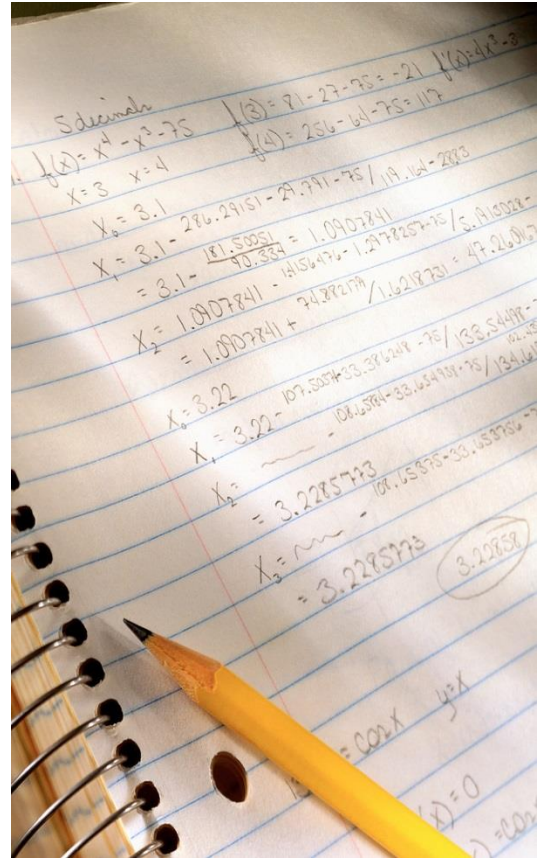 5 decimals
1. f(x) = x⁴ - x³ - 75 f(3) = 81 - 27 - 75 = -21 f'(x) = 4x³ - 3
x = 3 x = 4 f(4) = 256 - 64 - 75 = 117
X₀ = 3.1
X₁ = 3.1 - 286.29151 - 29.791 - 75 / 119.164 - 2883
= 3.1 - 181.50051 / 90.334 = 1.0907841
X₂ = 1.0907841 - 1.4156476 - 1.2978257 - 75 / 5.1913028 -
= 1.0907841 + 74.882179 / 1.6218731 = 47.260167
X₀ = 3.22
X₁ = 3.22 - 107.50574 - 33.386248 - 75 / 133.54498 -
X₂ = - 108.6584 - 33.654938 - 75 / 134.61
= 3.2285773 - 108.65375 - 33.653756 -
X₃ =
= 3.2285773 3.22858
= cos x y = x
(x) = 0
) = cos